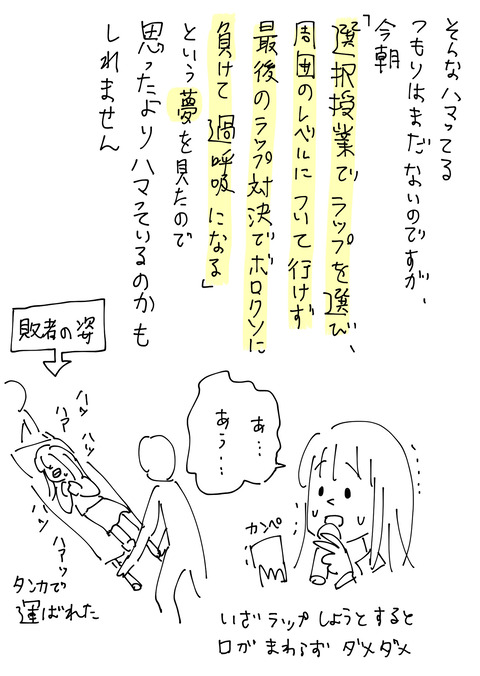 そんなハマってる
つもりはまだないのですが、
今朝
「選択授業でラップを選び、
周囲のレベルについて行けず
最後のラップ対決でボロクソに
負けて過呼吸になる」
という夢を見たので
思ったよりハマっているのかも
しれません
敗者の姿
ハッ
ハァ
ハッ
ハッ
ハァッ
タンカで
運ばれた
あ…
あう…
カンペ
いざラップしようとすると
口がまわらずダメダメ